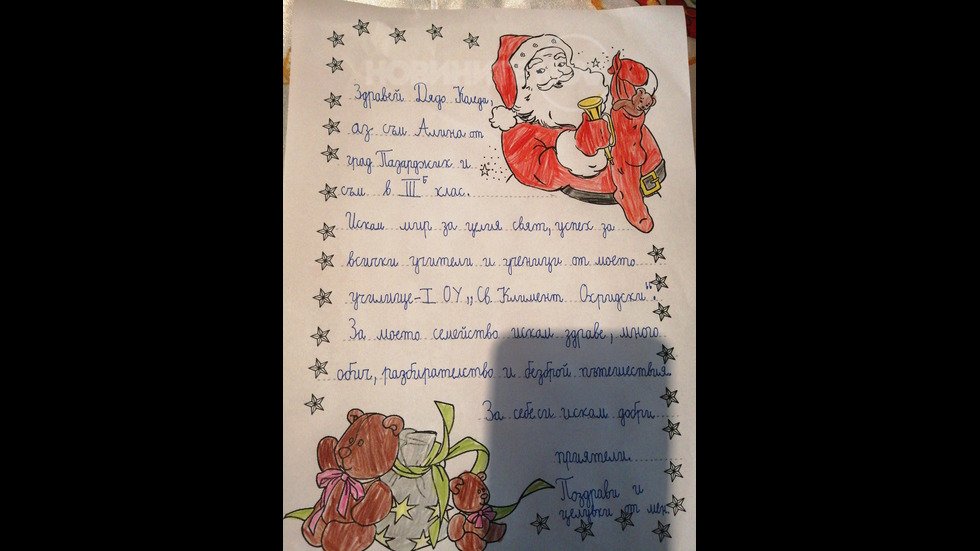 НОВИНИ
Здравей Дядо Коледа,
аз съм Алина от
град Пазарджик и
съм в III б клас.
Искам мир за целия свят, успех за
всички учители и ученици от моето
училище - I ОУ „Св. Климент Охридски".
За моето семейство искам здраве, много
обич, разбирателство и безброй пътешествия.
За себе си искам добри
приятели.
Поздрави и
целувки от мен.